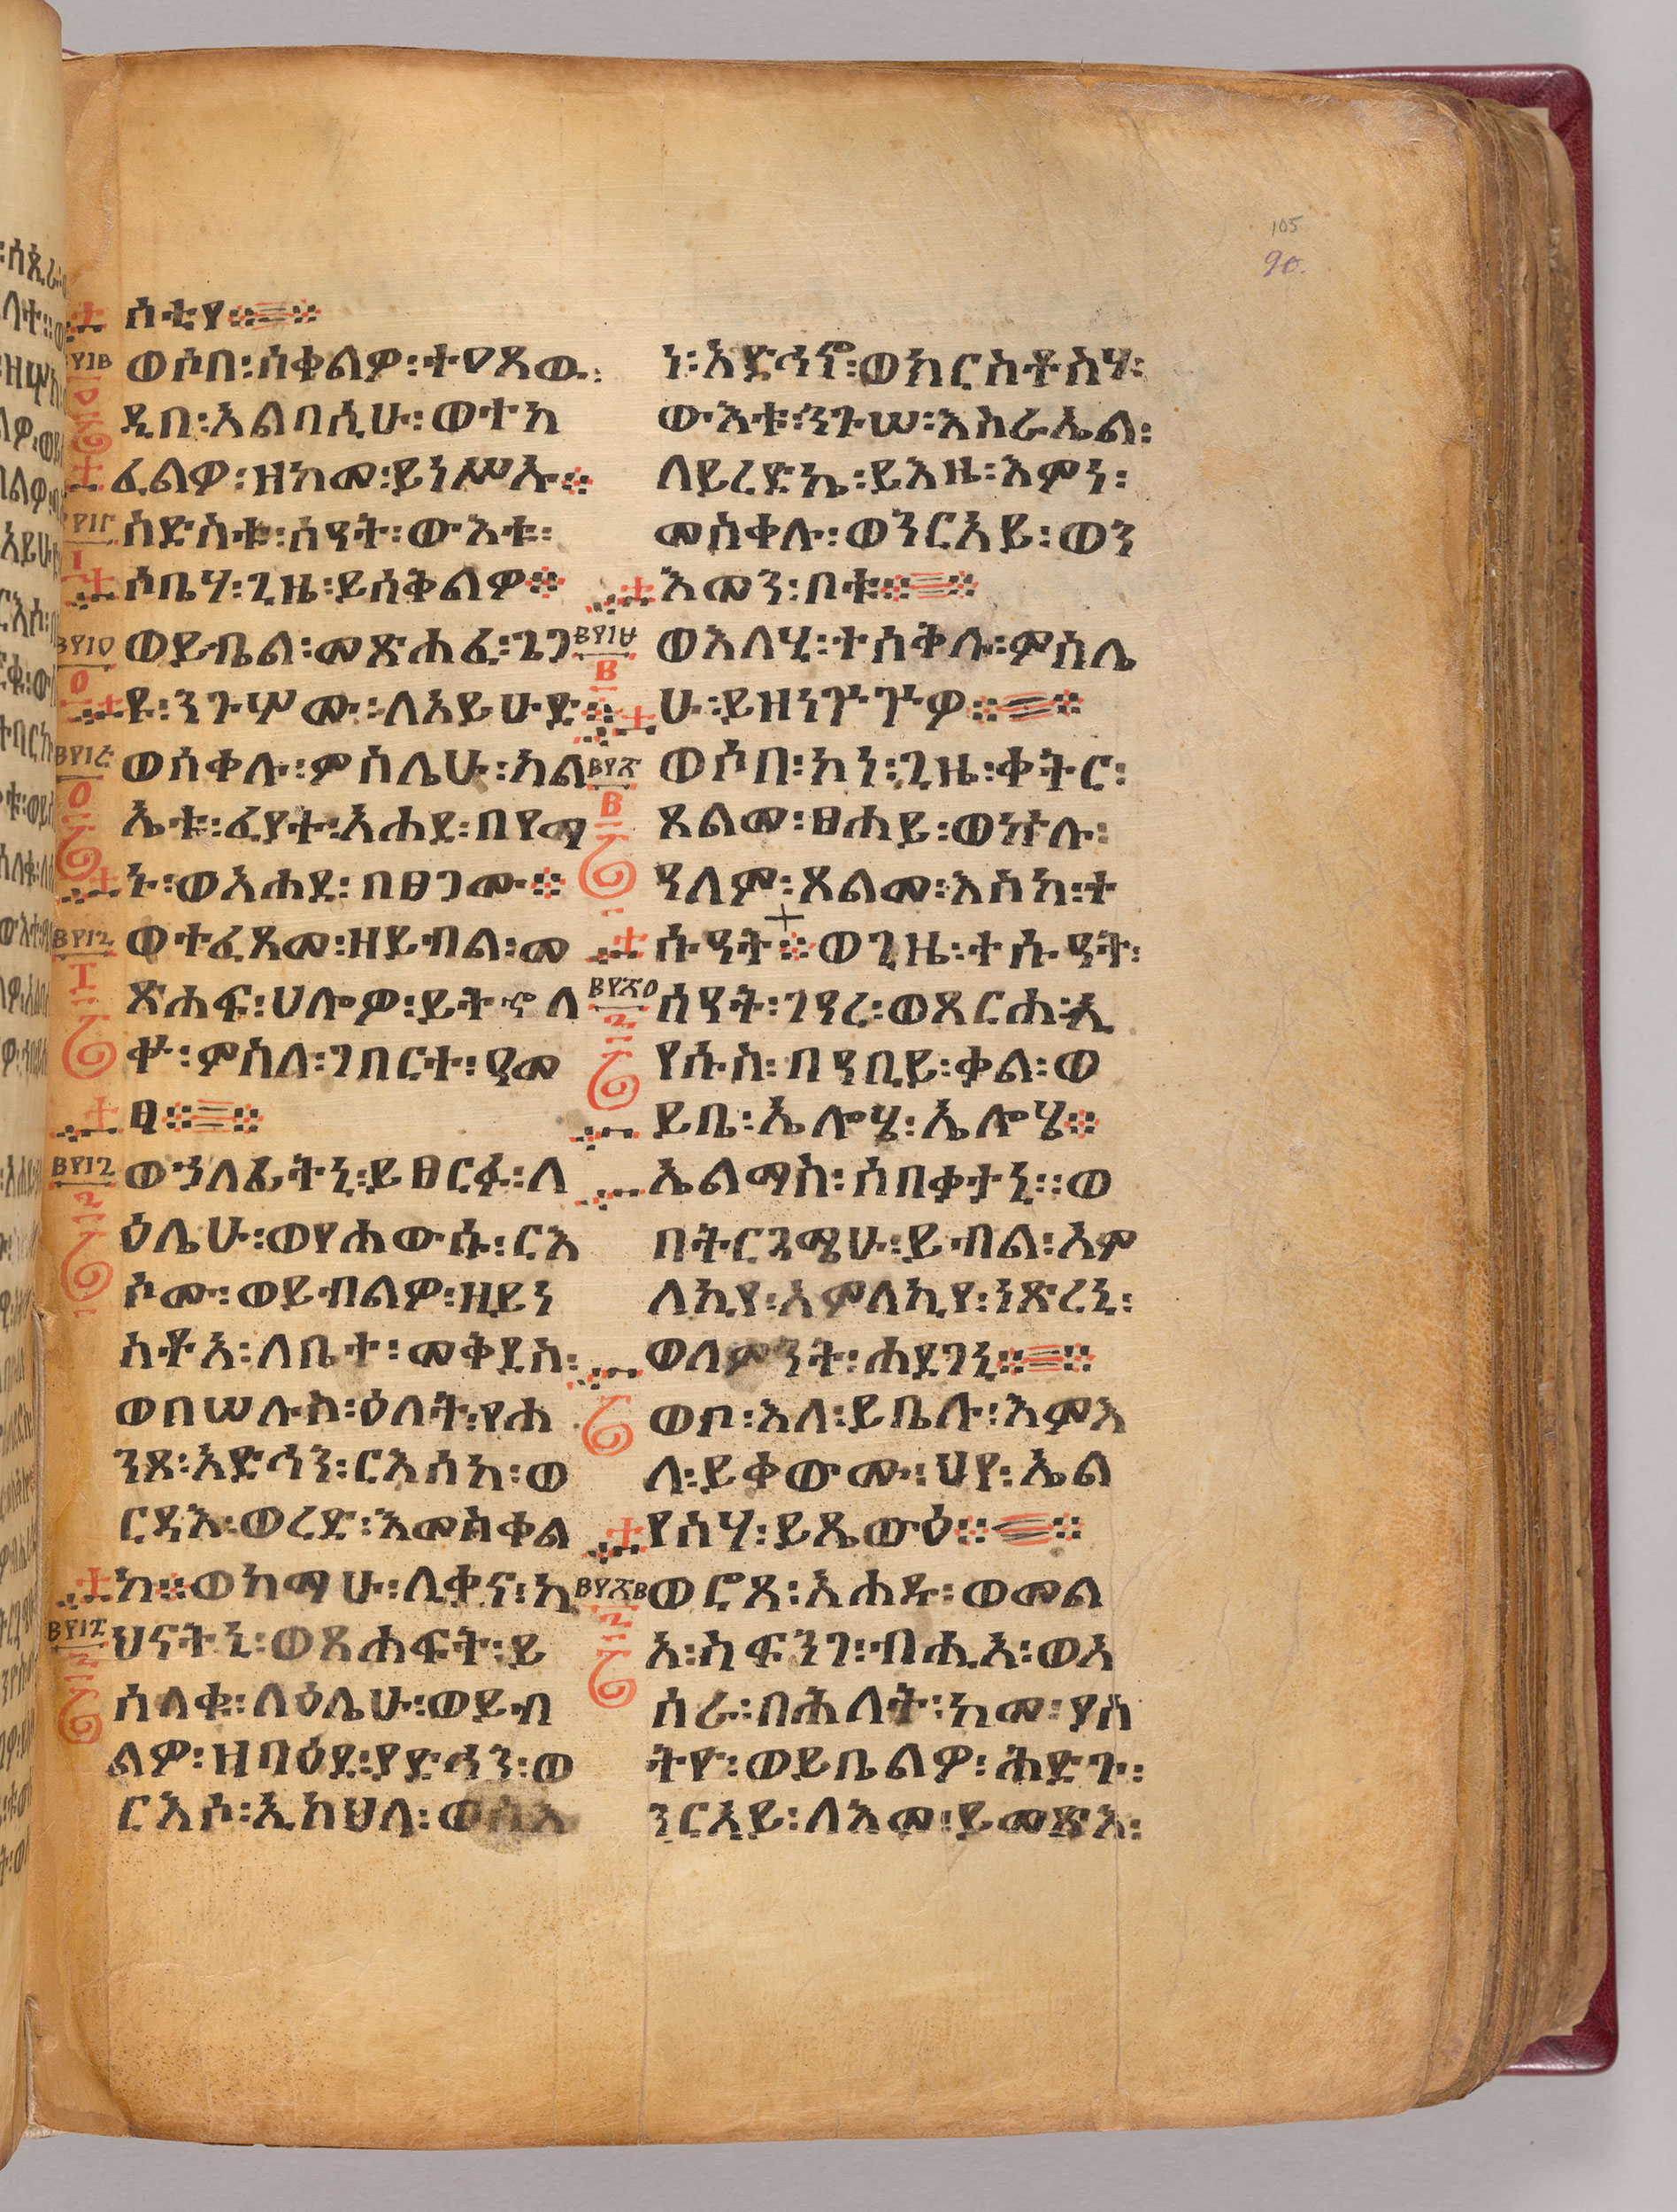 105
90.
ሰቲየ
ወሶበ፡ሰቀልዎ፡ተዐጸው፡
ዲበ፡አልባሲሁ፡ወተካ
ፈልዎ፡ዘከመ፡ይነሥኡ
ስድስቱ፡ሰዓት፡ውእቱ፡
ሶቤሃ፡ጊዜ፡ይሰቅልዎ
ወይቤል፡መጽሐፈ፡ጌጋ
ዩ፡ንጉሦሙ፡ለአይሁድ
ወሰቀሉ፡ምስሌሁ፡ካል
ኤቱ፡ፈያት፡አሐደ፡በየማ
ኑ፡ወአሐደ፡በፀጋሙ
ወተፈጸመ፡ዘይብል፡መ
ጽሐፍ፡ሀሎዎ፡ይትኆለ
ቍ፡ምስለ፡ገበርተ፡ዓመ
ፃ
ወኀለፍትኒ፡ይፀርፉ፡ለ
ዕሌሁ፡ወየሐውሱ፡ርእ
ሶሙ፡ወይብልዎ፡ዘይን
ስቶ፡ለቤተ፡መቅደስ፡
ወበሠሉስ፡ዕለት፡የሐ
ንጸ፡አድኅን፡ርእሰከ፡ወ
ርዳእ፡ወረድ፡እመስቀል
ከ፡ወከማሁ፡ሊቃና፡ካ
ህናትኒ፡ወጸሐፍት፡ይ
ሰላቁ፡ለዕሌሁ፡ወይብ
ልዎ፡ዘባዕደ፡ያድኅን፡ወ
ርእሶ፡ኢክህለ፡
ነ፡አድኅኖ፡ወክርስቶስሃ፡
ውእቱ፡ንጉሠ፡እስራኤል፡
ለይረድኬ፡ይእዜ፡እምነ፡
መስቀሉ፡ወንርአይ፡ወን
እመን፡ቦቱ
ወእለሂ፡ተሰቅሉ፡ምስሌ
ሁ፡ይዘነጕጕዎ
ወሶበ፡ከነ፡ጊዜ፡ቀትር፡
ጸልመ፡ፀሐይ፡ወኵሉ፡
ዓለም፡ጸልመ፡እስከ፡ተ
ሱዓት፡ወጊዜ፡ተሱዓት፡
ሰዓት፡ገዓረ፡ወጸርሐ፡ኢ
የሱስ፡በዓቢይ፡ቃል፡ወ
ይቤ፡ኤሎሄ፡ኤሎሄ
ኤልማስ፡ሰበቀታኒ፡፡ወ
በትርጓሜሁ፡ይብል፡አም
ላኪየ፡አምላኪየ፡ነጽረኒ፡
ወለምንት፡ሐደገኒ
ወቦ፡እለ፡ይቤሉ፡እምእ
ለ፡ይቀውሙ፡ህየ፡ኤል
የስሃ፡ይጼውዕ
ወሮጸ፡አሐዱ፡ወመል
አ፡ስፍንገ፡ብሒአ፡ወአ
ሰራ፡በሕለት፡ከመ፡ያስ
ትዮ፡ወይቤልዎ፡ሕድጉ፡
ንርአይ፡ለእመ፡ይመጽእ፡